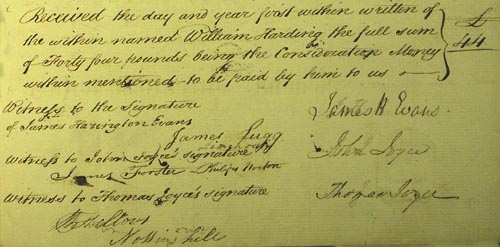 Received the day and year first within written of
the within named William Harding the full sum
of Forty four pounds being the Consideration Money
within mentioned to be paid by him to us
£
44
Witness to the Signature
of James Harrington Evans
James H Evans
James Lugg
Witness to John Joyce's signature
John Joyce
James Forster
Witness to Thomas Joyce's signature
Thomas Joyce
Notting hill